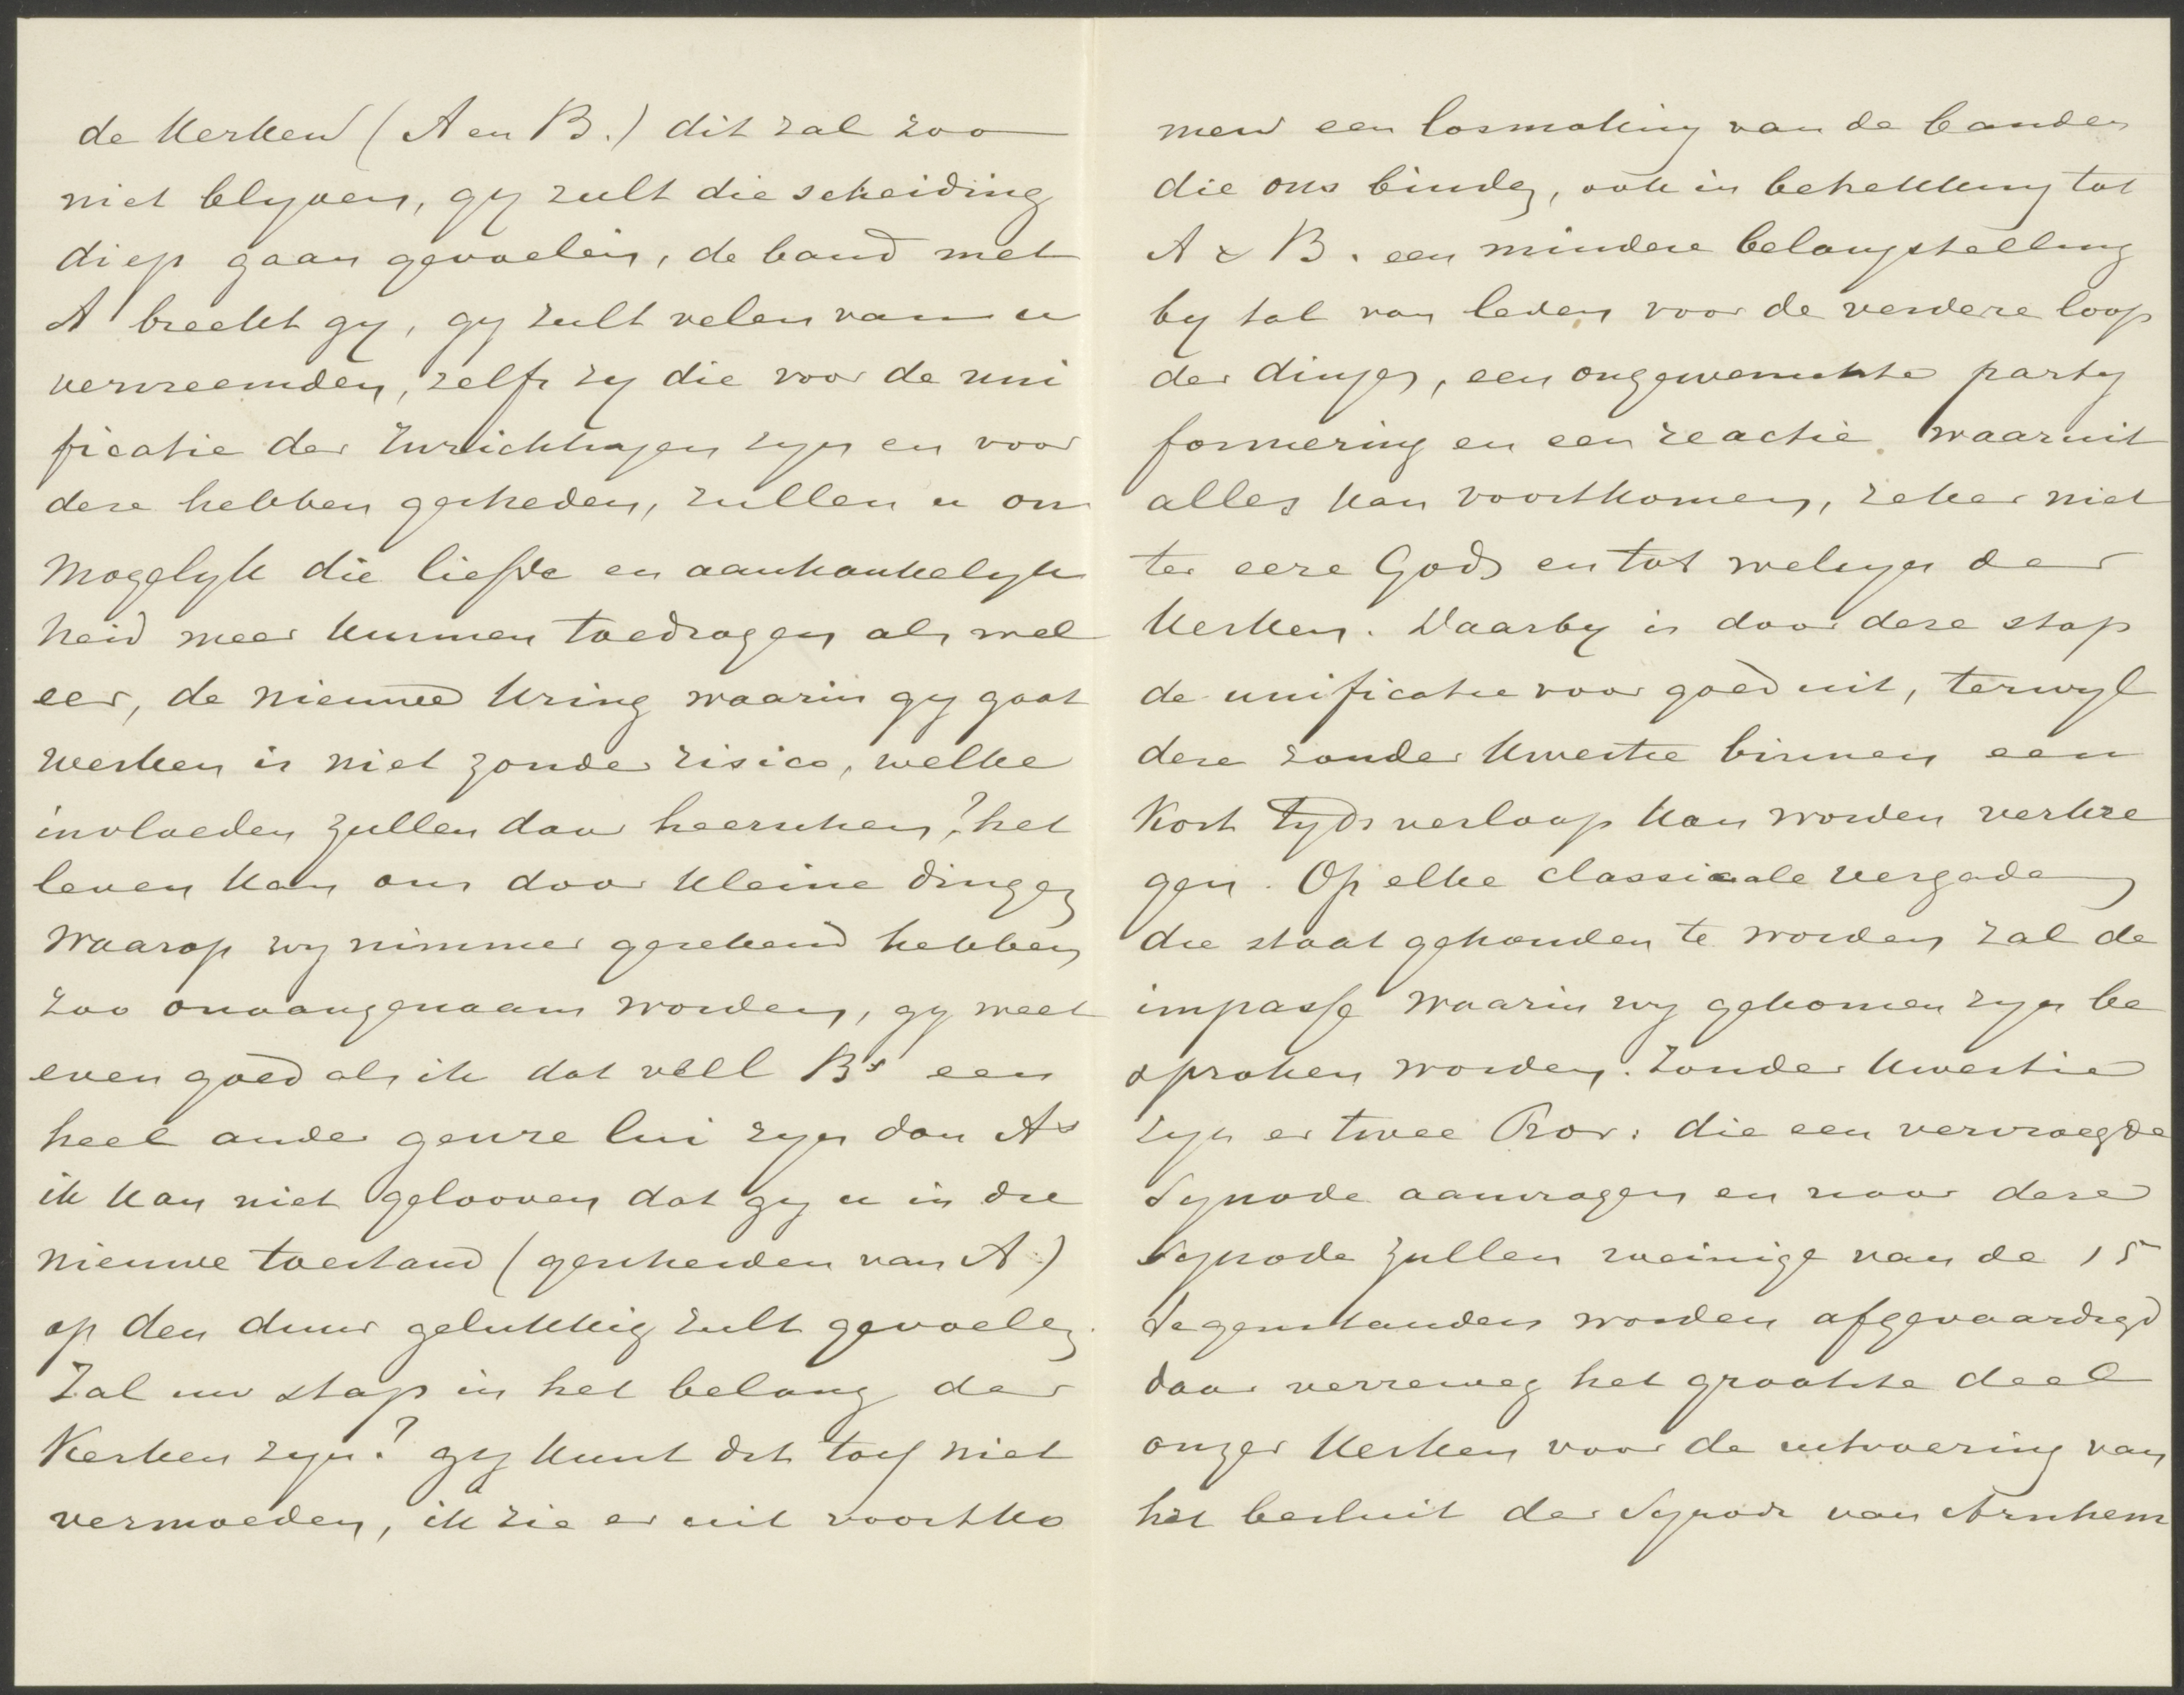 de Kerken (A en B.) dit zal zoo
niet blyven, gy zult die scheiding
diep gaan gevoelen, de band met
A breekt gy, gy zult velen van u
vervreemden, zelfs zy die voor de uni
ficatie der Inrichtingen zyn en voor
deze hebben gestreden, zullen u on
mogelyk die liefde en aanhankelyk
heid meer kunnen toedragen als wel
eer, de nieuwe Kring waarin gy gaat
werken is niet zonder risico, welke
invloeden zullen daar heerschen? het
leven kan ons door kleine dingen
waarop wy nimmer gerekend hebben
zoo onaangenaam worden, gy weet
even goed als ik dat veel Bs een
heel ander genre lui zyn dan As
ik kan niet gelooven dat gy u in die
nieuwe toestand (gescheiden van A.)
op den duur gelukkig zult gevoelen.
Zal uw stap in het belang der
Kerken zyn? gy kunt dit toch niet
vermoeden, ik zie er uit voortko
men een losmaking van de banden
die ons binden, ook in betrekking tot
A & B. een mindere belangstelling
by tal van leden voor de verdere loop
der dingen, een ongewenschte party
formering en een reactie waaruit
alles kan voortkomen, zeker niet
ter eere Gods en tot welzyn der
Kerken. Daarby is door deze stap
de unificatie voor goed uit, terwyl
deze zonder kwestie binnen een
kort tyds verloop kan worden verkre
gen. Op elke classicale vergade
die staat gehouden te worden zal de
impasse waarin wy gekomen zyn be
sproken worden. Zonder kwestie
zyn er twee Prov: die een vervroegde
Synode aanvragen en naar deze
Synode zullen weinige van de 15
tegenstanders worden afgevaardigd
daar verreweg het grootste deel
onzer Kerken voor de uitvoering van
het besluit der Synode van Arnhem